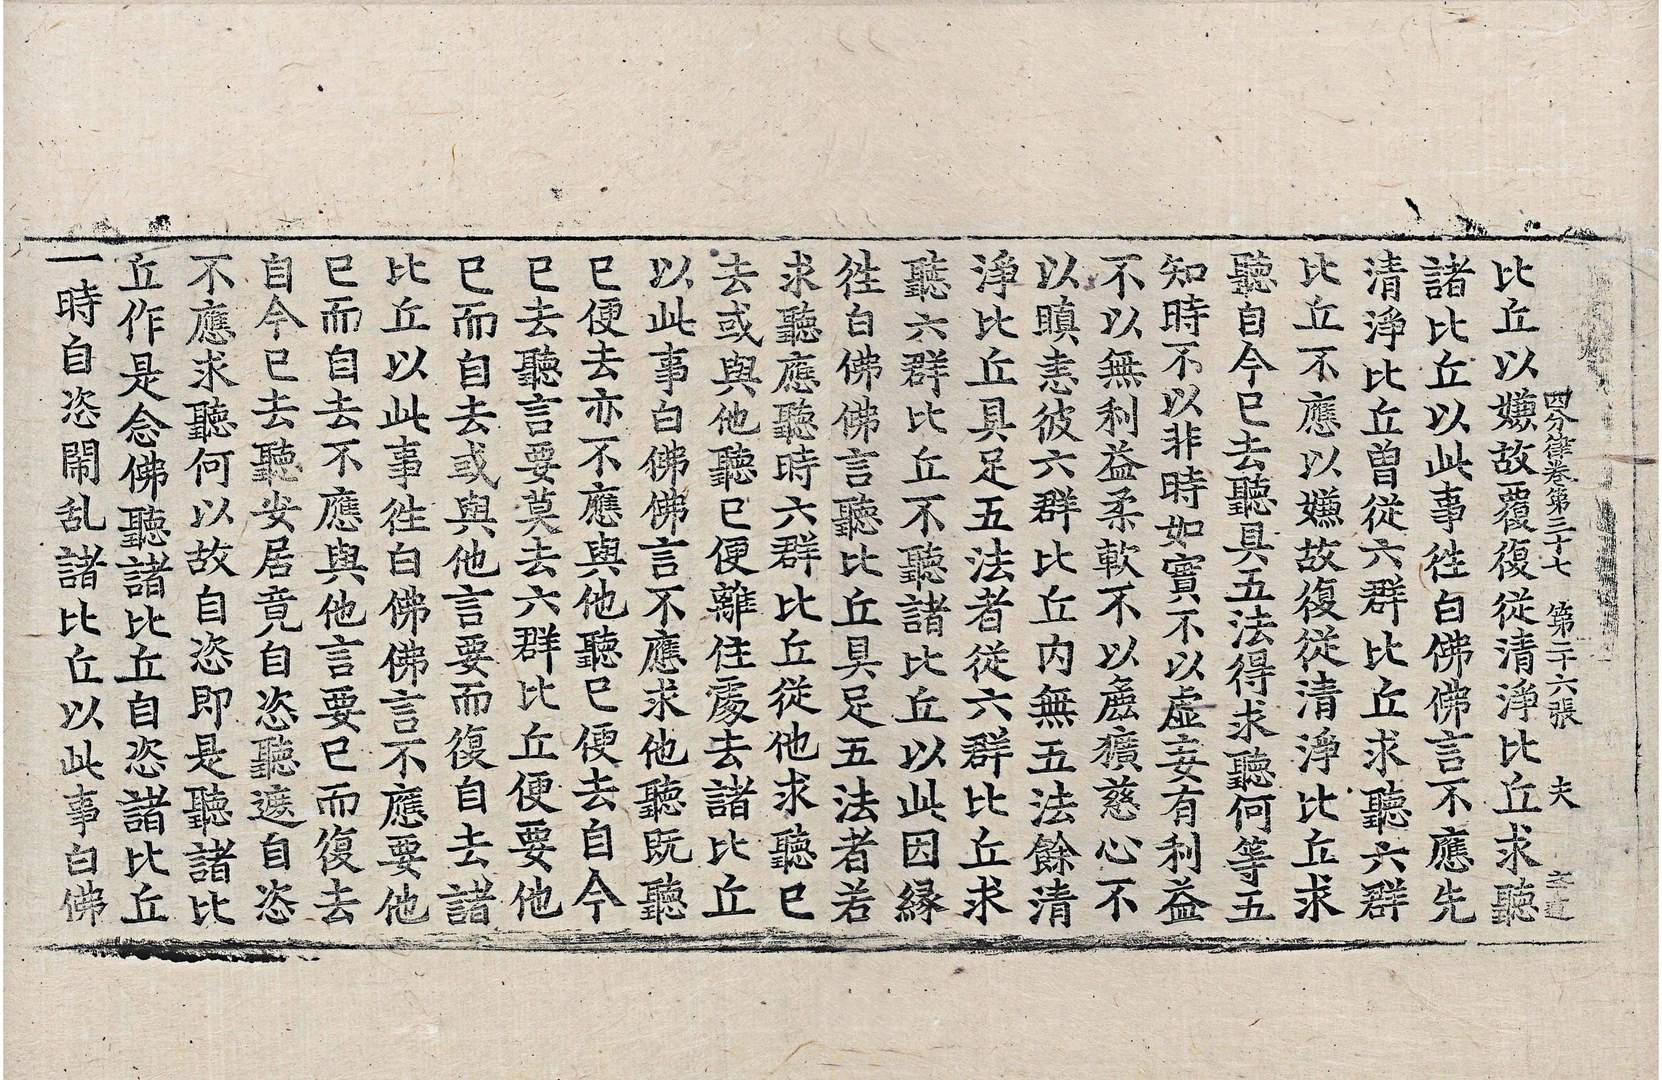 四分律卷第三十七 第二十六張 夫
比丘以嫌故覆復從清淨比丘求聽
諸比丘以此事徃白佛佛言不應先
清淨比丘曾從六群比丘求聽六群
比丘不應以嫌故復從清淨比丘求
聽自今已去聽具五法得求聽何等五
知時不以非時如實不以虛妄有利益
不以無利益柔軟不以麁獷慈心不
以瞋恚彼六群比丘内無五法餘清
淨比丘具足五法者從六群比丘求
聽六群比丘不聽諸比丘以此因縁
徃白佛佛言聽比丘具足五法者若
求聽應聽時六群比丘從他求聽已
去或與他聽已便離住處去諸比丘
以此事白佛佛言不應求他聽既聽
已便去亦不應與他聽已便去自今
已去聽言要莫去六群比丘便要他
已而自去或與他言要而復自去諸
比丘以此事徃白佛佛言不應要他
已而自去不應與他言要已而復去
自今已去聽安居竟自恣聽遮自恣
不應求聽何以故自恣即是聽諸比
丘作是念佛聽諸比丘自恣諸比丘
一時自恣閙乱諸比丘以此事白佛